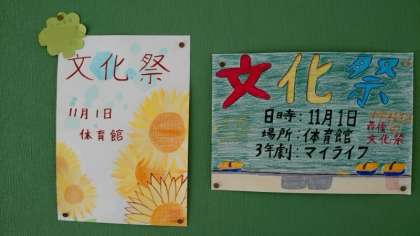 文化祭
11月1日
体育館
文化祭
日時：11月1日
場所：体育館
3年劇：マイライフ
文化祭